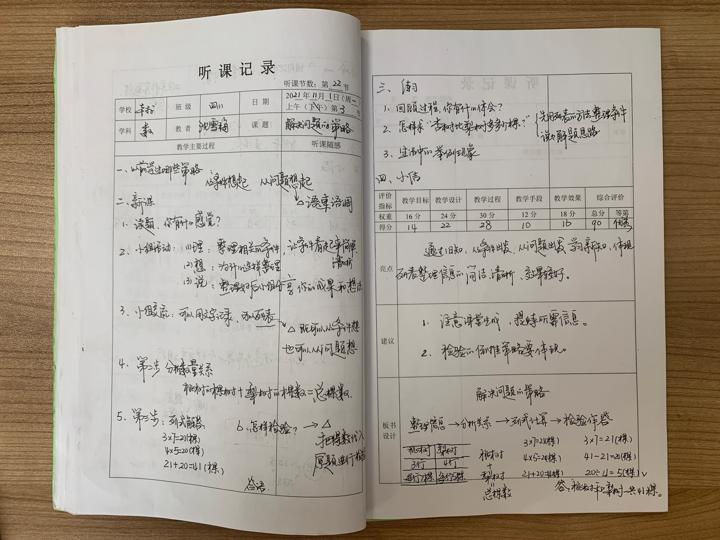 听课记录
听课节数：第 22 节
学校 班级 四(1) 日期 2021年11月1日(周一
上午(下午)第3节
学科 数 教者 沈雪梅 课题 解决问题的策略
教学主要过程 听课随感
一、以前学过哪些策略
从条件想起 从问题想起
△课堂语调
二、新课
1. 读题，你有什么感觉？
2. 小组活动：(1)理：整理相关的条件，让条件看起来简单
清晰
(2)想：为什么这样整理
(3)说：整理好后小组分享你的成果和想法
3. 小组交流：可以用文字记录，可以列表
△既可以从条件想
也可以从问题想
4. 第二步 分析数量关系
桃树的棵数+梨树的棵数=总棵数
5. 第三步：列式解答
3×7=21(棵)
4×5=20(棵)
21+20=41(棵)
6. 怎样检验？→△
把得数代入
原题进行检验
总结
三、练习
1. 回顾过程，你有什么体会？
2. 怎样求“杏树比梨树多多少棵？”
先用列表的方法整理条件
说为解题思路
3. 生活中的举例现象
四、小结
评价指标 教学目标 教学设计 教学过程 教学手段 教学效果 综合评价
权重 16分 24分 30分 12分 18分 总分 等第
得分 14 22 28 10 16 90 优秀
亮点
通过旧知，从条件出发，从问题出发，学习新知，体现
列表整理信息的简洁、清晰，效果较好。
建议
1. 注意课堂生成，提炼所需信息。
2. 检验的倒推策略要体现。
板书设计
解决问题的策略
整理信息→分析关系→列式计算→检验作答
桃树 梨树
3行 4行
每行7棵 每行5棵
桃树
+
梨树
=
总棵数
3×7=21(棵)
4×5=20(棵)
21+20=41(棵)
3×7=21(棵)
41-21=20(棵)
20÷4=5(棵)√
答：桃树和梨树一共41棵。